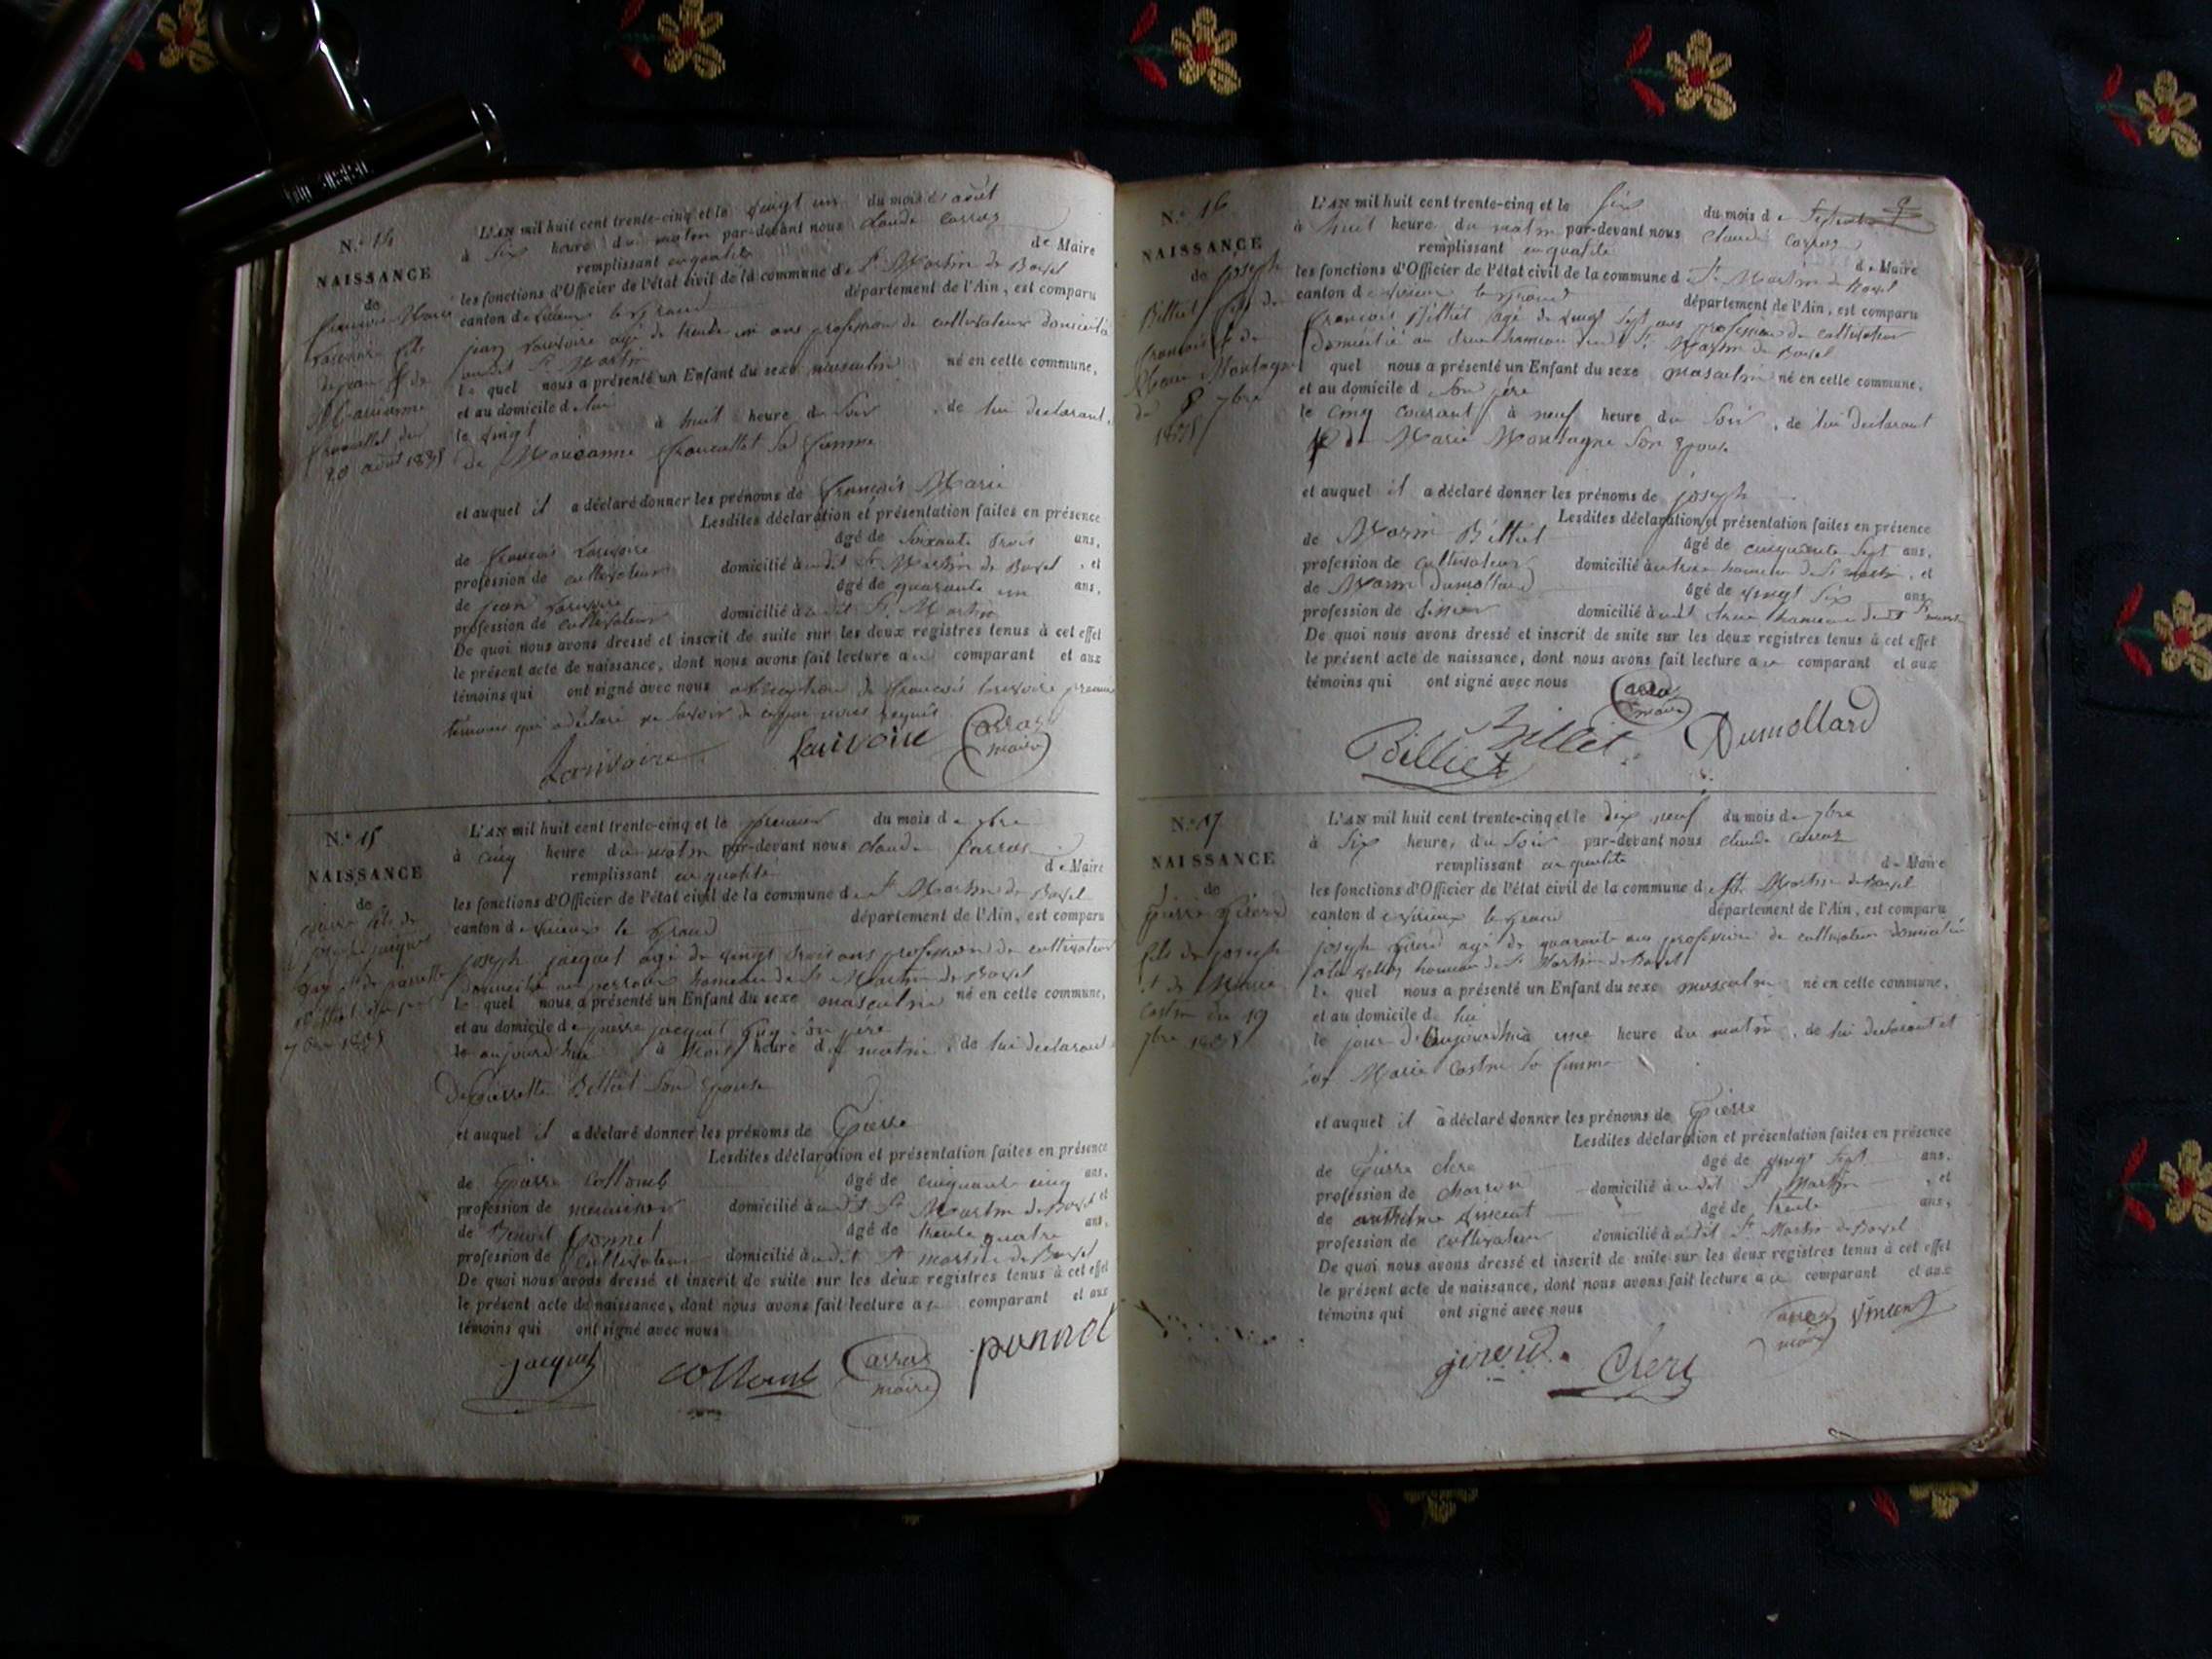 N.° 14
NAISSANCE
de
François Marie
Larivoire fils
de jean & de
Marianne
du
20 août 1835
L'AN mil huit cent trente-cinq et le vingt un du mois d'août
à six heure du matin par-devant nous Claude Carraz
de Maire
remplissant en qualité
les fonctions d'Officier de l'état civil de la commune de St Martin de Bavel
canton de virieux le Grand département de l'Ain, est comparu
jean Larivoire agé de trente un ans profession de cultivateur domicilié
audit St Martin
le quel nous a présenté un Enfant du sexe masculin né en cette commune,
et au domicile de lui
le vingt à huit heure du soir, de lui déclarant,
de Marianne sa femme
et auquel il a déclaré donner les prénoms de François Marie
Lesdites déclaration et présentation faites en présence
de François Larivoire âgé de soixante trois ans,
profession de cultivateur domicilié audit St Martin de Bavel, et
de jean Larivoire âgé de quarante un ans,
profession de cultivateur domicilié audit St Martin
De quoi nous avons dressé et inscrit de suite sur les deux registres tenus à cet effet
le présent acte de naissance, dont nous avons fait lecture au comparant et aux
témoins qui ont signé avec nous a l'exception de François Larivoire premier
témoin qui a déclaré ne savoir de ce requis
Larivoire Larivoire Carraz
maire
N.° 15
NAISSANCE
de
pierre fils de
joseph jacquet
Guy & de pierrette
Billiet du 1er
7bre 1835
L'AN mil huit cent trente-cinq et le premier du mois de 7bre
à cinq heure du matin par-devant nous Claude Carraz
de Maire
remplissant en qualité
les fonctions d'Officier de l'état civil de la commune de St Martin de Bavel
canton de virieux le Grand département de l'Ain, est comparu
joseph jacquet agé de vingt trois ans profession de cultivateur
domicilié au hameau de St Martin de Bavel
le quel nous a présenté un Enfant du sexe masculin né en cette commune,
et au domicile de pierre jacquet Guy son père
le aujourd'hui à trois heure du matin, de lui déclarant
De Pierrette Billiet son épouse
et auquel il a déclaré donner les prénoms de Pierre
Lesdites déclaration et présentation faites en présence
de Pierre Collomb âgé de cinquante cinq ans,
profession de menuisier domicilié audit St Martin de Bavel et
de Benoit Ponnet âgé de trente quatre ans,
profession de Cultivateur domicilié audit St martin de Bavel
De quoi nous avons dressé et inscrit de suite sur les deux registres tenus à cet effet
le présent acte de naissance, dont nous avons fait lecture au comparant et aux
témoins qui ont signé avec nous
jacquet Collomb Carraz ponnet
maire
N.° 16
NAISSANCE
de joseph
Billiet fils de
François & de
Marie Montagne
du 5 7bre
1835
9
L'AN mil huit cent trente-cinq et le six du mois de Septembre
à huit heure du matin par-devant nous Claude Carraz
de Maire
remplissant en qualité
les fonctions d'Officier de l'état civil de la commune de St Martin de Bavel
canton de virieux le Grand département de l'Ain, est comparu
François Billiet agé de vingt sept ans profession de cultivateur
domicilié au hameau dudit St Martin de Bavel
quel nous a présenté un Enfant du sexe masculin né en cette commune,
et au domicile de son père
le cinq courant à neuf heure du soir, de lui declarant
& de Marie Montagne son Epouse
et auquel il a déclaré donner les prénoms de joseph
Lesdites déclaration et présentation faites en présence
de Marin Billiet âgé de cinquante sept ans,
profession de cultivateur domicilié hameau de St martin, et
de Marin Dumollard âgé de vingt six ans
profession de domicilié audit hameau dudit St martin
De quoi nous avons dressé et inscrit de suite sur les deux registres tenus à cet effet
le présent acte de naissance, dont nous avons fait lecture au comparant et aux
témoins qui ont signé avec nous Carraz
maire
Billiet Billiet Dumollard
N.° 17
NAISSANCE
de
pierre Girerd
fils de joseph
& de Marie
Castin du 19
7bre 1835
L'AN mil huit cent trente-cinq et le dix neuf du mois de 7bre
à six heure, du soir par-devant nous Claude Carraz
de Maire
remplissant en qualité
les fonctions d'Officier de l'état civil de la commune de St Martin de Bavel
canton de virieux le Grand département de l'Ain, est comparu
joseph Girerd agé de quarante ans profession de cultivateur domicilié
hameau de St Martin de Bavel
le quel nous a présenté un Enfant du sexe masculin né en cette commune,
et au domicile de lui
le jour d'aujourdhui à une heure du matin, de lui declarant et
de Marie Castin sa femme
et auquel il a déclaré donner les prénoms de Pierre
Lesdites déclaration et présentation faites en présence
de Pierre Clerc âgé de vingt sept ans.
profession de charron domicilié audit St Martin, et
de anthelme vincent âgé de trente ans,
profession de cultivateur domicilié audit St Martin de Bavel
De quoi nous avons dressé et inscrit de suite sur les deux registres tenus à cet effet
le présent acte de naissance, dont nous avons fait lecture au comparant et aux
témoins qui ont signé avec nous Carraz vincent
maire
girerd Clerc